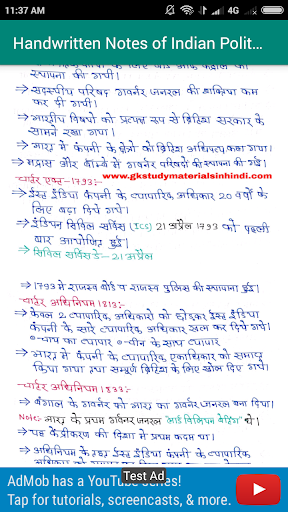 11:37 AM
4G
Handwritten Notes of Indian Polit...
स्थापना की गयी।
→ सदस्यीय परिषद गवर्नर जनरल की शक्तियां कम
कर दी गयी।
→ भारतीय विषयों को प्रत्यक्ष रूप से ब्रिटिश सरकार के
सामने रखा गया।
→ भारत में कंपनी के क्षेत्रों को ब्रिटिश अधिपत्य कहा गया।
→ मद्रास और बॉम्बे में गवर्नर परिषदों की स्थापना की गई।
www.gkstudymaterialsinhindi.com
चार्टर एक्ट-1793:-
→ ईस्ट इंडिया कंपनी के व्यापारिक अधिकार 20 वर्षों के
लिए बढ़ा दिये गये।
→ इंडियन सिविल सर्विस (ICS) 21 अप्रैल 1793 को पहली
बार आयोजित हुई।
→ सिविल सर्विस डे - 21 अप्रैल
→ 1793 में राजस्व बोर्ड व राजस्व पुलिस की स्थापना हुई।
चार्टर अधिनियम 1813:-
→ केवल 2 व्यापारिक अधिकारों को छोड़कर ईस्ट इंडिया
कंपनी के सारे व्यापारिक अधिकार खत्म कर दिये गये।
०-चाय का व्यापार ०-चीन के साथ व्यापार
→ भारत में कंपनी के व्यापारिक एकाधिकार को समाप्त
किया गया तथा सम्पूर्ण ब्रिटिश के लिए खोल दिए गये।
चार्टर अधिनियम 1833:-
→ बंगाल के गवर्नर को भारत का गवर्नर जनरल बना दिया।
Note:- भारत के प्रथम गवर्नर जनरल "लार्ड विलियम बैंटिक" थे।
→ यह केंद्रीकरण की दिशा में प्रथम कदम था।
→ अधिनियम के तहत ईस्ट इंडिया कंपनी के व्यापारिक
Test Ad
AdMob has a YouTube series!
Tap for tutorials, screencasts, & more.